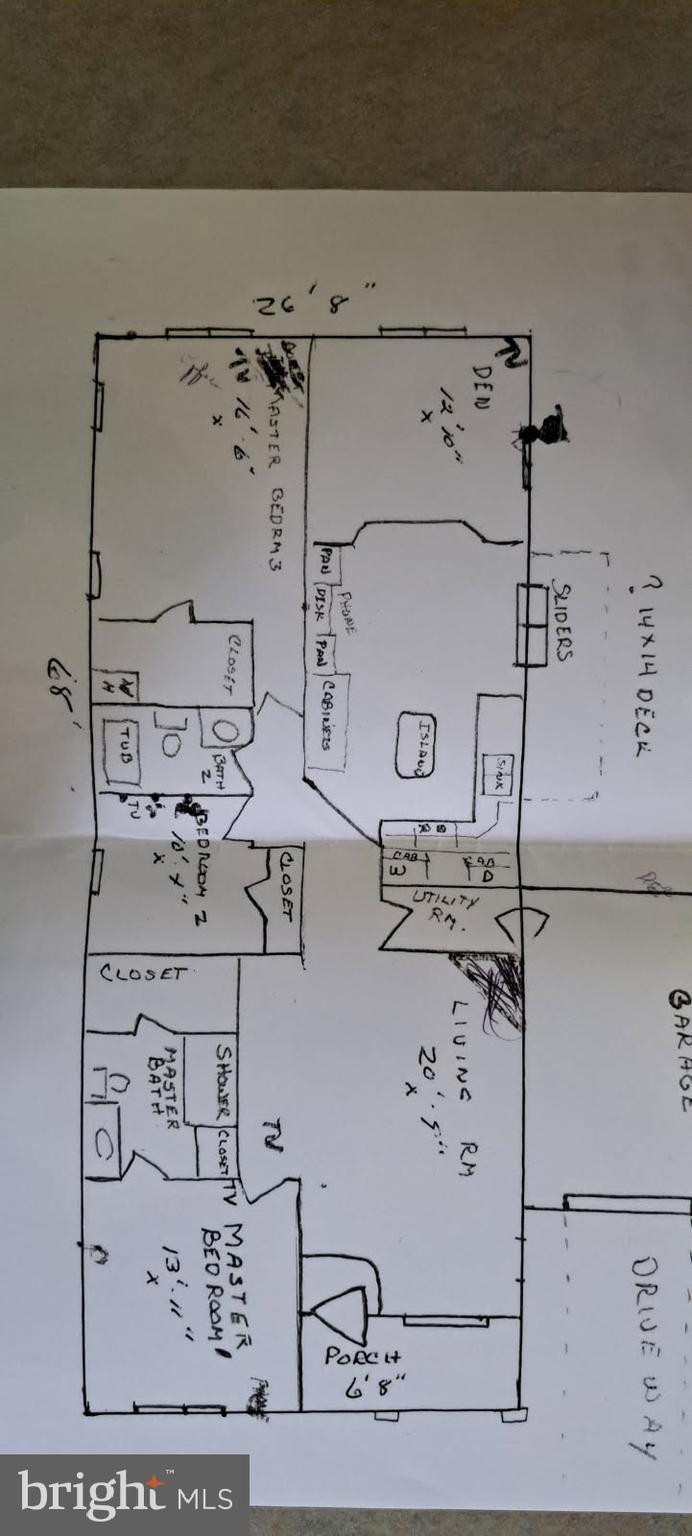 26' 8"
TV
DEN
12' 10"
x
MASTER BEDRM 3
TV
16' 6"
x
SLIDERS
? 14X14 DECK
PAN
DISK
PHONE
PAN
CABINETS
ISLAND
SINK
CLOSET
WH
68'
TUB
BATH
2
TV
BEDROOM 2
x
CLOSET
CAB
3
CAB
UTILITY
RM.
GARAGE
LIVING RM
20' 5"
x
CLOSET
SHOWER
MASTER
BATH
CLOSET
TV
TV
MASTER
BEDROOM 1
13' 11"
x
PORCH
6' 8"
DRIVEWAY
bright™ MLS